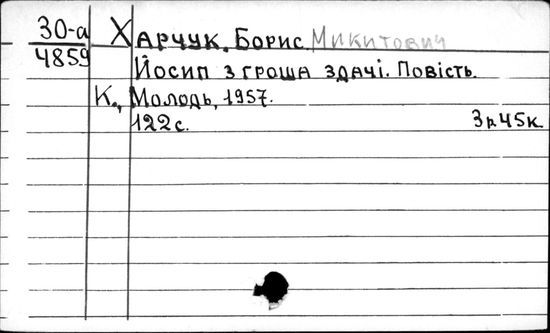 30-а Харчук, Борис Микитович
4859 Йосип з гроша здачі. Повість.
К., Молодь, 1957.
122с. 3р.45к.